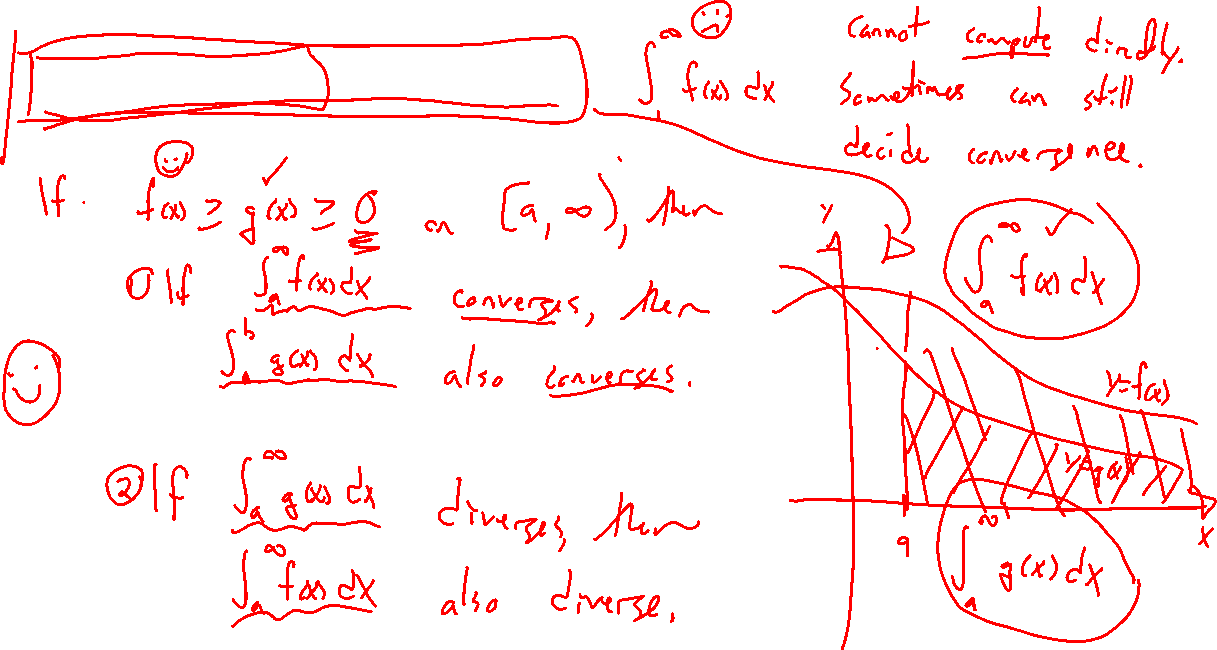 ∫₁^∞ f(x) dx
cannot compute directly.
Sometimes can still
decide convergence.
If f(x) ≥ g(x) ≥ 0 on [a, ∞), then
① If ∫ₐ^∞ f(x) dx converges, then
∫ₐ^b g(x) dx also converges.
② If ∫ₐ^∞ g(x) dx diverges, then
∫ₐ^∞ f(x) dx also diverge.
y
∫ₐ^∞ f(x) dx
y=f(x)
y=g(x)
a
x
∫ₐ^∞ g(x) dx